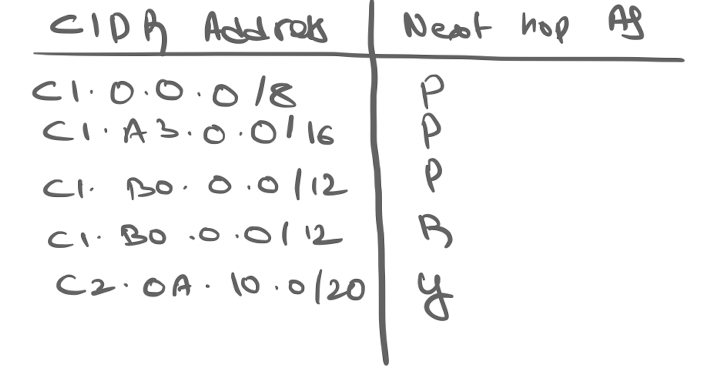 CIDR Address Next hop AS
C1.0.0.0/8 P
C1.A3.0.0/16 P
C1.B0.0.0/12 P
C1.B0.0.0/12 R
C2.0A.10.0/20 Y